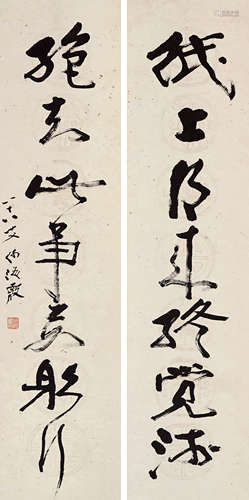 纸上得来终觉浅
绝知此事要躬行